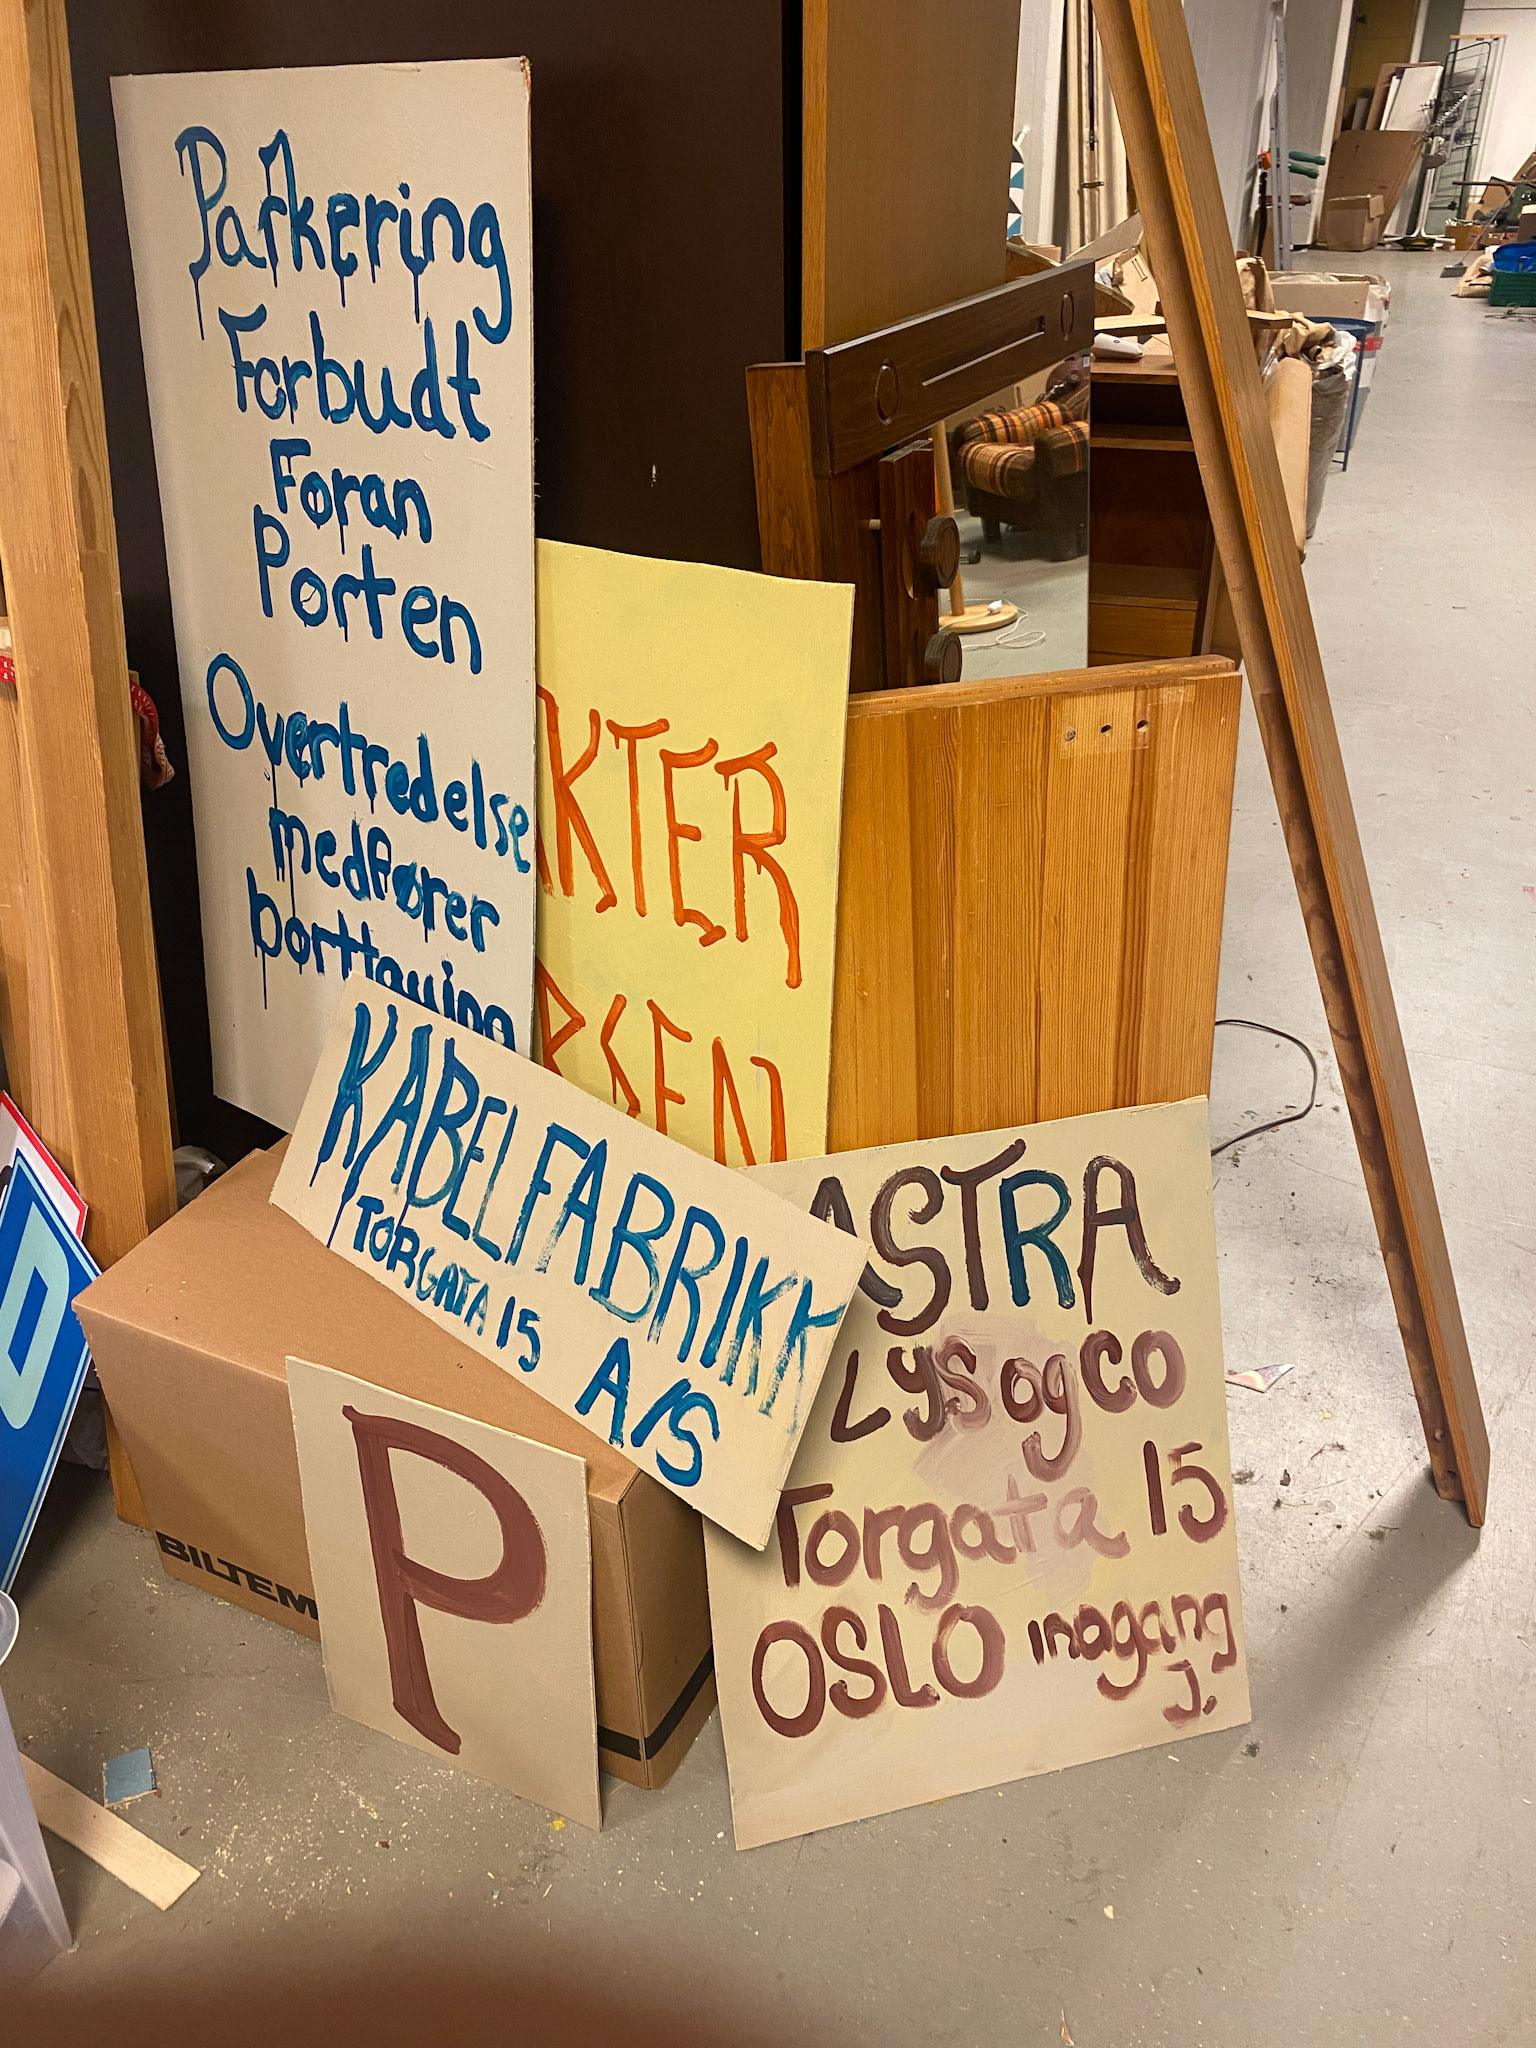 Parkering
Forbudt
Foran
Porten
Overtredelse
medfører
borttauing
KTER
SEN
KABELFABRIKK
TORGATA 15 A/S
ASTRA
LYS og CO
Torgata 15
OSLO inngang
J.
P
BILTEM